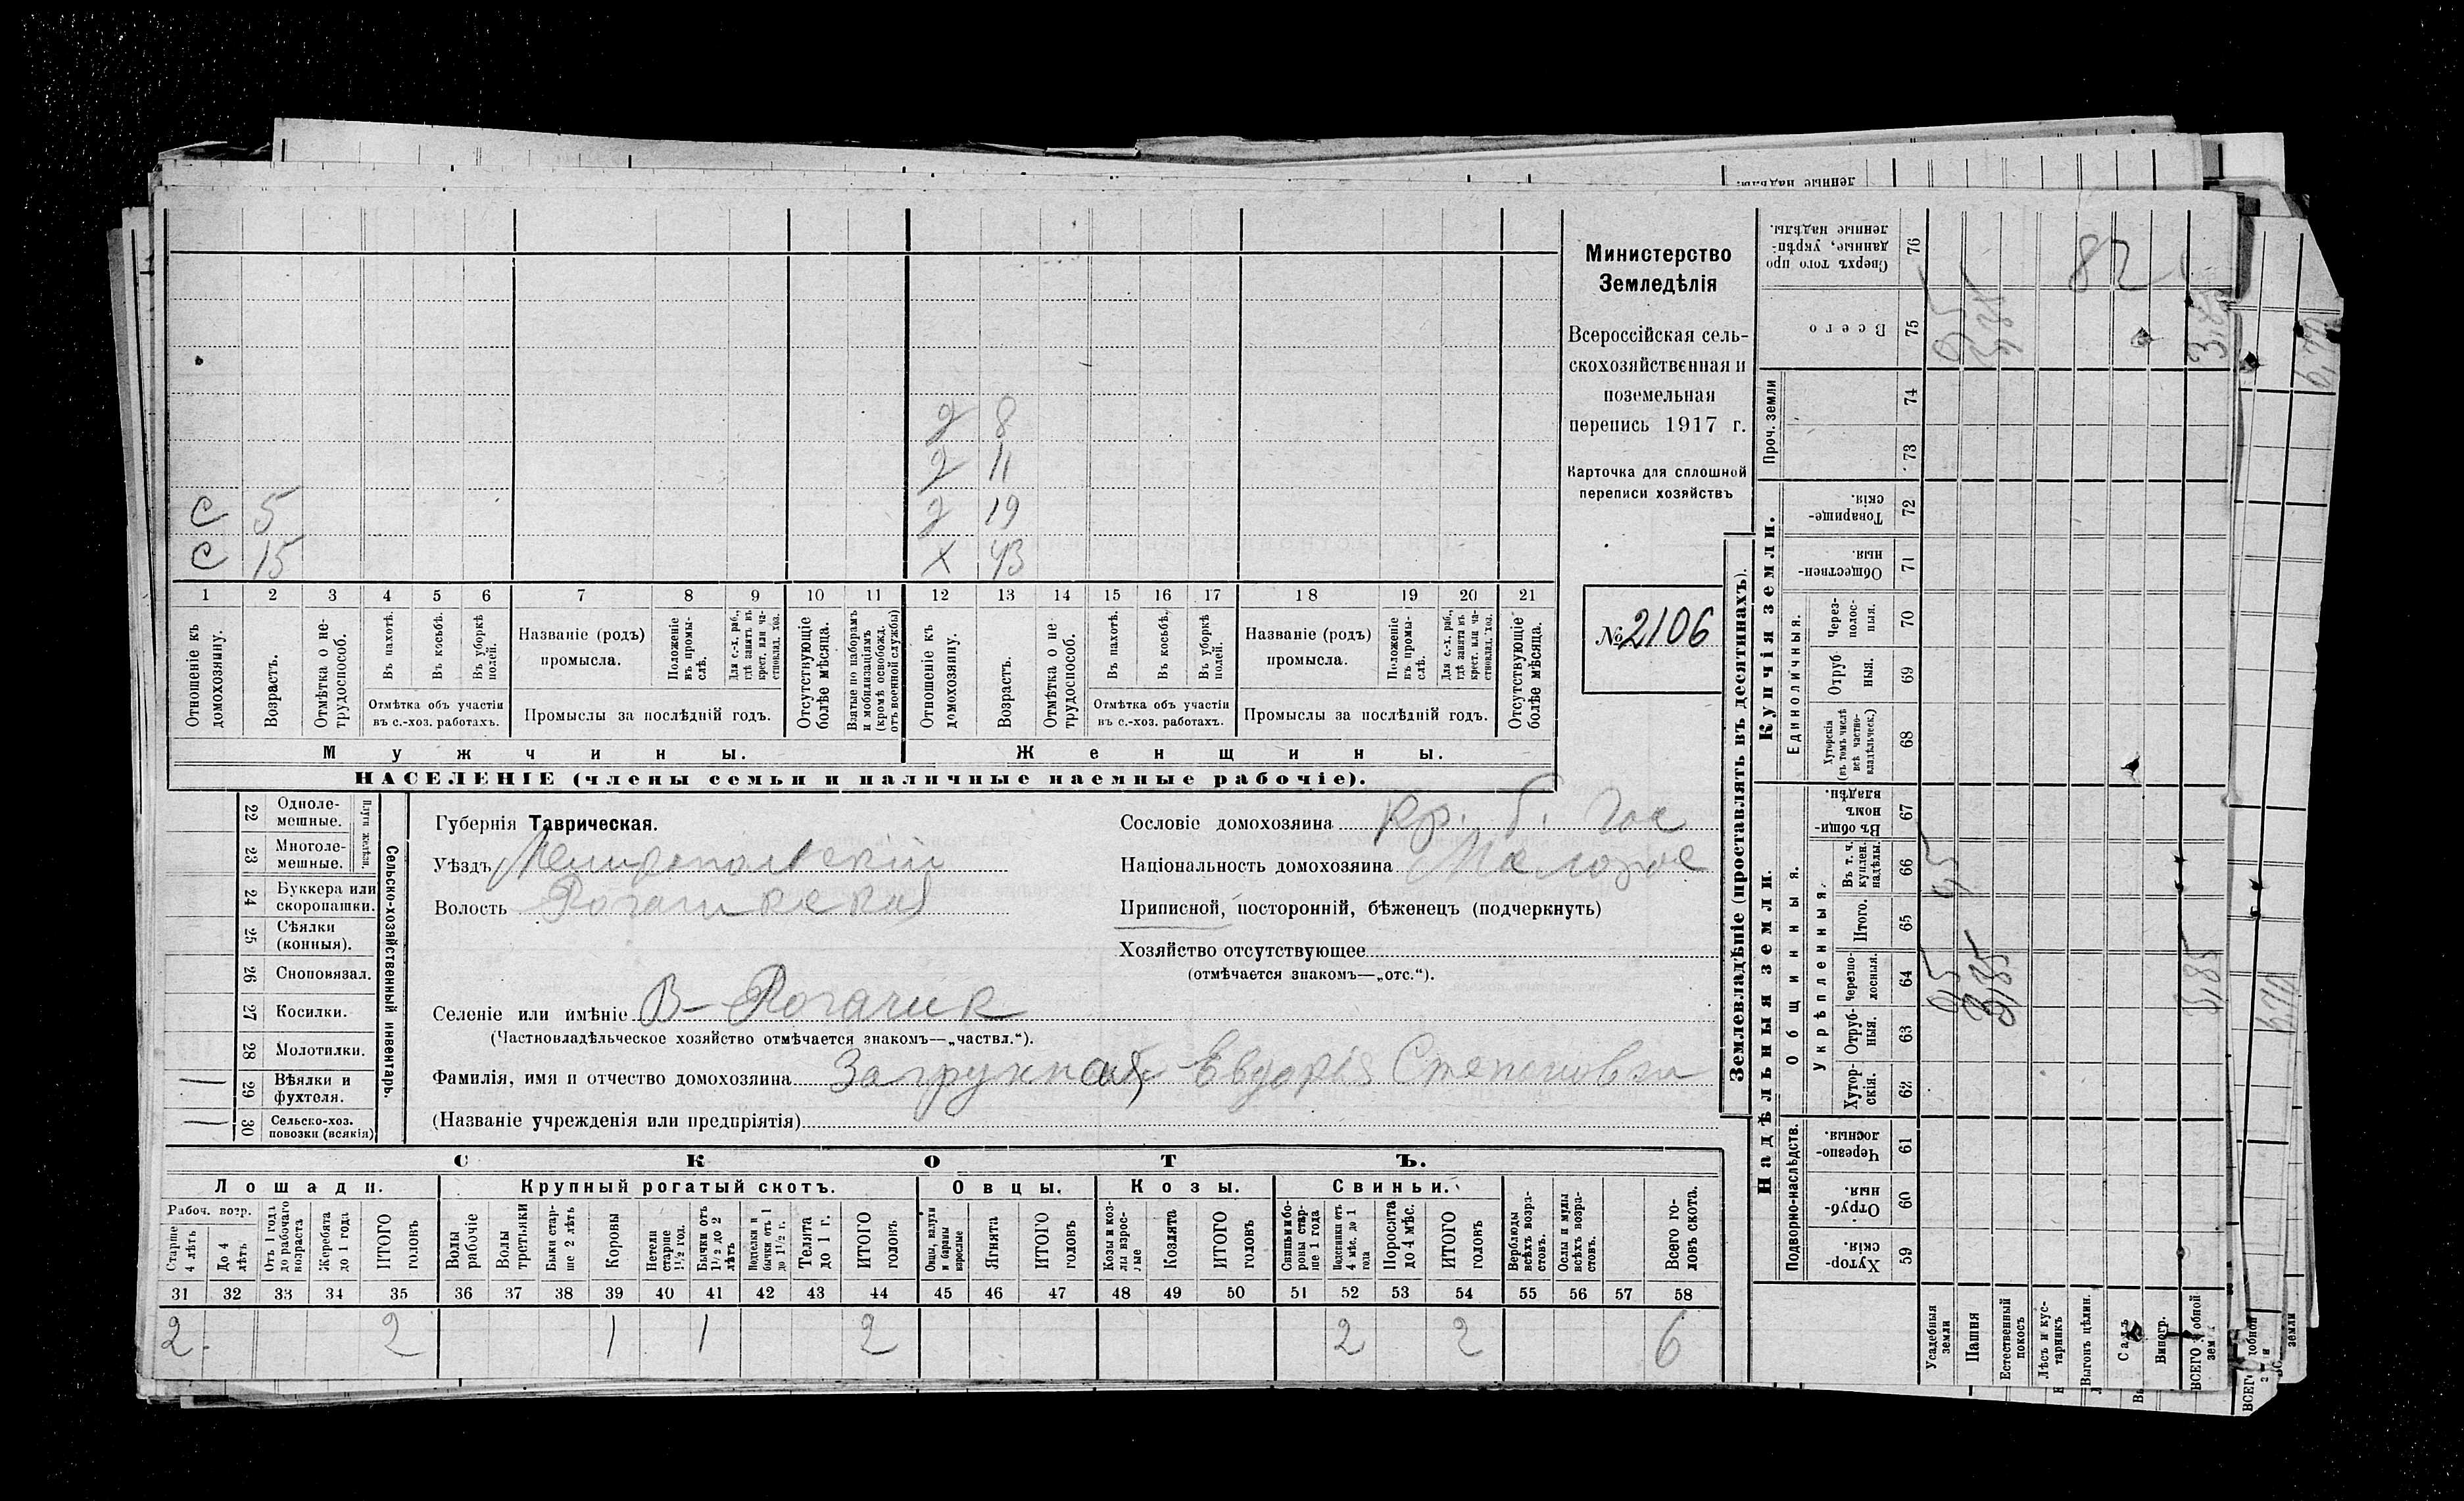 Министерство
Земледѣлія
Всероссійская сель-
скохозяйственная и
поземельная
перепись 1917 г.
Карточка для сплошной
переписи хозяйствъ
№ 2106
д 8
д 11
с 5 д 19
с 15 х 43
1 2 3 4 5 6 7 8 9 10 11 12 13 14 15 16 17 18 19 20 21
Отношеніе къ домохозяину.
Возрастъ.
Отмѣтка о не-трудоспособ.
Въ пахотѣ.
Въ косьбѣ.
Въ уборкѣ полей.
Отмѣтка объ участіи
въ с.-хоз. работахъ.
Названіе (родъ)
промысла.
Положеніе въ промы-слѣ.
Для с.-х. раб., гдѣ занятъ въ крест. или ча-стновлад. хоз.
Промыслы за послѣдній годъ.
Отсутствующіе болѣе мѣсяца.
Взятые по наборамъ и мобилизаціямъ (кромѣ освобожд. отъ военной службы)
Отношеніе къ домохозяину.
Возрастъ.
Отмѣтка о не-трудоспособ.
Въ пахотѣ.
Въ косьбѣ.
Въ уборкѣ полей.
Отмѣтка объ участіи
въ с.-хоз. работахъ.
Названіе (родъ)
промысла.
Положеніе въ промы-слѣ.
Для с.-х. раб., гдѣ занята въ крест. или ча-стновлад. хоз.
Промыслы за послѣдній годъ.
Отсутствующіе болѣе мѣсяца.
Мужчины.
Женщины.
НАСЕЛЕНІЕ (члены семьи и наличные наемные рабочіе).
22 Одноле-мешные.
23 Многоле-мешные.
Плуги желѣзн.
24 Буккера или скоропашки.
25 Сѣялки (конныя).
26 Сноповязал.
27 Косилки.
28 Молотилки.
29 Вѣялки и фухтеля.
30 Сельско-хоз. повозки (всякія)
Сельско-хозяйственный инвентарь.
Губернія Таврическая.
Уѣздъ Мелитопольскій
Волость Рогачикская
Селеніе или имѣніе В-Рогачик
(Частновладѣльческое хозяйство отмѣчается знакомъ—„частвл.“).
Фамилія, имя и отчество домохозяина Загрункая Евдокія Степановна
(Названіе учрежденія или предпріятія)
Сословіе домохозяина кр. б. гос
Національность домохозяина Малорос
Приписной, посторонній, бѣженецъ (подчеркнуть)
Хозяйство отсутствующее
(отмѣчается знакомъ—„отс.“).
СКОТЪ.
Лошади.
Рабоч. возр.
Старше 4 лѣтъ
До 4 лѣтъ
Отъ 1 года до рабочаго возраста
Жеребята до 1 года
ИТОГО головъ
Крупный рогатый скотъ.
Волы рабочіе
Волы третьяки
Быки стар-ше 2 лѣтъ
Коровы
Нетели старше 1½ год.
Бычки отъ 1½ до 2 лѣтъ
Телята до 1 г.
ИТОГО головъ
Овцы.
Овцы, валухи и бараны взрослые
Ягнята
ИТОГО головъ
Козы.
Козы и коз-лы взрос-лые
Козлята
ИТОГО головъ
Свиньи.
Свиньи и бо-ровы стар-ше 1 года
Подсвинки отъ 4 мѣс. до 1 года
Поросята до 4 мѣс.
ИТОГО головъ
Верблюды всѣхъ возра-стовъ.
Ослы и мулы всѣхъ возра-стовъ.
Всего го-ловъ скота.
31 32 33 34 35 36 37 38 39 40 41 42 43 44 45 46 47 48 49 50 51 52 53 54 55 56 57 58
2 2 1 1 2 2 2 6
Землевладѣніе (проставлять въ десятинахъ).
Надѣльныя земли.
Подворно-наслѣдств.
Хутор-скія. 59
Отруб-ныя. 60
Черезпо-лосныя. 61
Общинныя.
Укрѣпленныя.
Хутор-скія. 62
Отруб-ныя. 63
Черезпо-лосныя. 64
Итого. 65
Въ т. ч. куплен. надѣлы. 66
Въ общин-номъ владѣн. 67
Купчія земли.
Единоличныя.
Хуторскія (въ томъ числѣ всѣ частно-владѣльческ.) 68
Отруб-ныя. 69
Через-полос-ныя. 70
Обществен-ныя. 71
Товарище-скія. 72
Проч. земли
73
74
Всего 75
Сверхъ того про-данные, укрѣп-ленные надѣлы. 76
82
Усадебныя земли
Пашня
Естественный покосъ
Лѣсъ и кус-тарникъ
Выгонъ цѣлин.
Садъ
Виногр.
ВСЕГО удобной земли
0,5
3,35
3,85